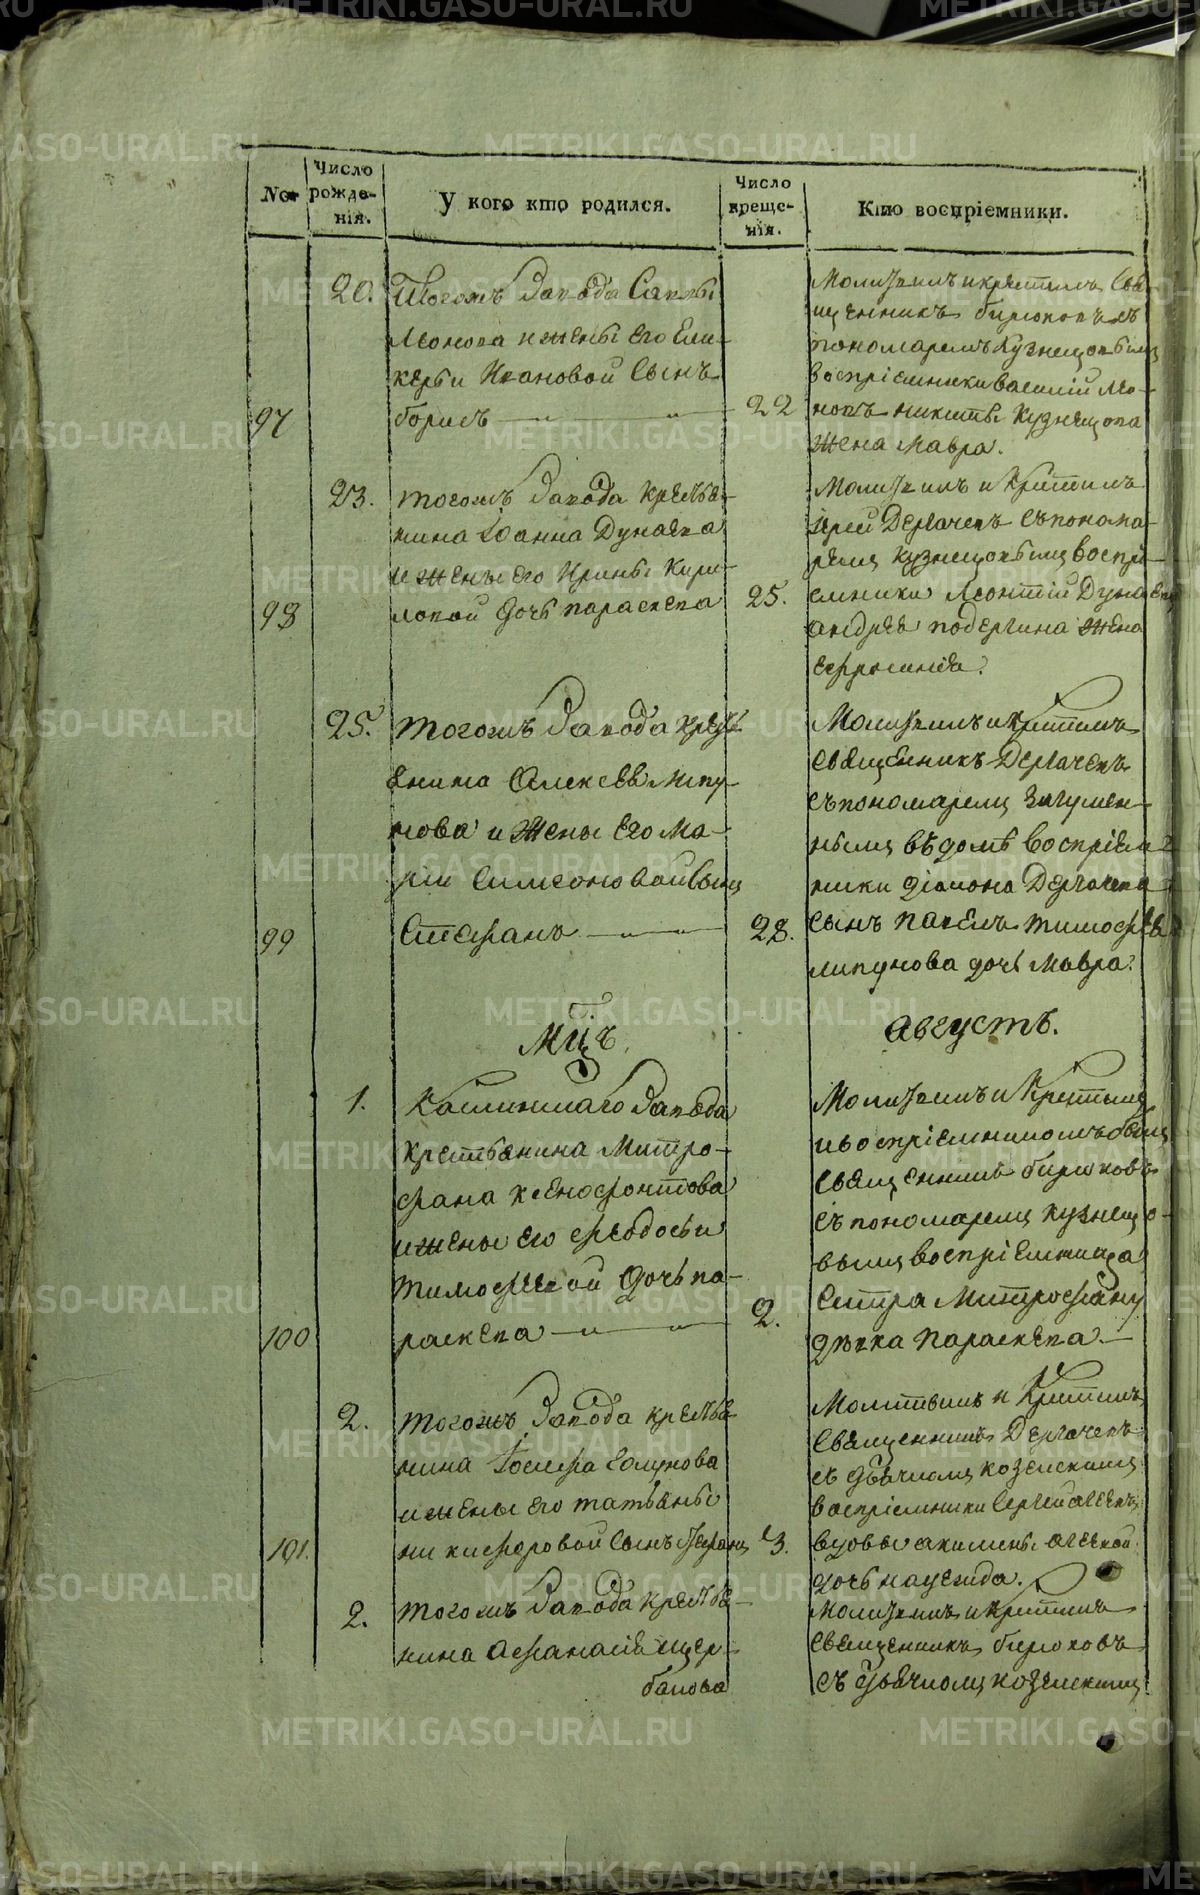 №
Число рожде-
нія.
У кого кто родился.
Число креще-
нія.
Кто воспріемники.
97
20.
Тогожъ Завода Саввы
Леонова и жены его Гли-
керьи Ивановой Сынъ
борисъ
22
Молитвилъ и крестилъ Свя-
щенникъ бирюковъ съ
пономаремъ Кузнецовымъ
воспріемники василій Лео-
новъ никиты Кузнецова
жена Мавра.
98
23.
тогожъ Завода крестья-
нина Іоанна Дунаева
и жены его Ирины Кири-
ловой дочь параскева
25.
Молитвилъ и Крестилъ
Іерей Дергачевъ съ понома-
ремъ кузнецовымъ воспрі-
емники Леонтій Дунаевъ
андрея подергина жена
ефросинія.
99
25.
тогожъ Завода крест
янина Алексея липу-
нова и жены его Ма-
рьи Симеоновой Сынъ
Стефанъ
28.
Молитвилъ и Крестилъ
священникъ Дергачевъ
съ пономаремъ Игумен-
нымъ въ домѣ воспріем-
ники діакона Дергачева
сынъ павелъ тимофея
липунова дочь Мавра.
Мцъ
августъ.
100
1.
Каслинскаго Завода
крестьянина Митро-
фана ксенофонтова
и жены его феодосьи
тимофеевой дочь па-
раскева
2.
Молитвилъ и Крестилъ
и воспріемникомъ былъ
священникъ бирюковъ
съ пономаремъ кузнецо-
вымъ воспріемница
сестра Митрофану
дѣвка параскева.
101.
2.
тогожъ Завода крестья
нина Іосифа
и жены его татьяны
никифоровой сынъ Стефанъ
3.
Молитвилъ и Крестилъ
Священникъ Дергачевъ
съ дьячкомъ козельскимъ
воспріемники Сергей
вдовы акилины
дочь
2.
тогожъ Завода крестья-
нина Афанасія щер-
бакова
Молитвилъ и крестилъ
священникъ бирюковъ
съ дьячкомъ козельскимъ
METRIKI.GASO-URAL.RU